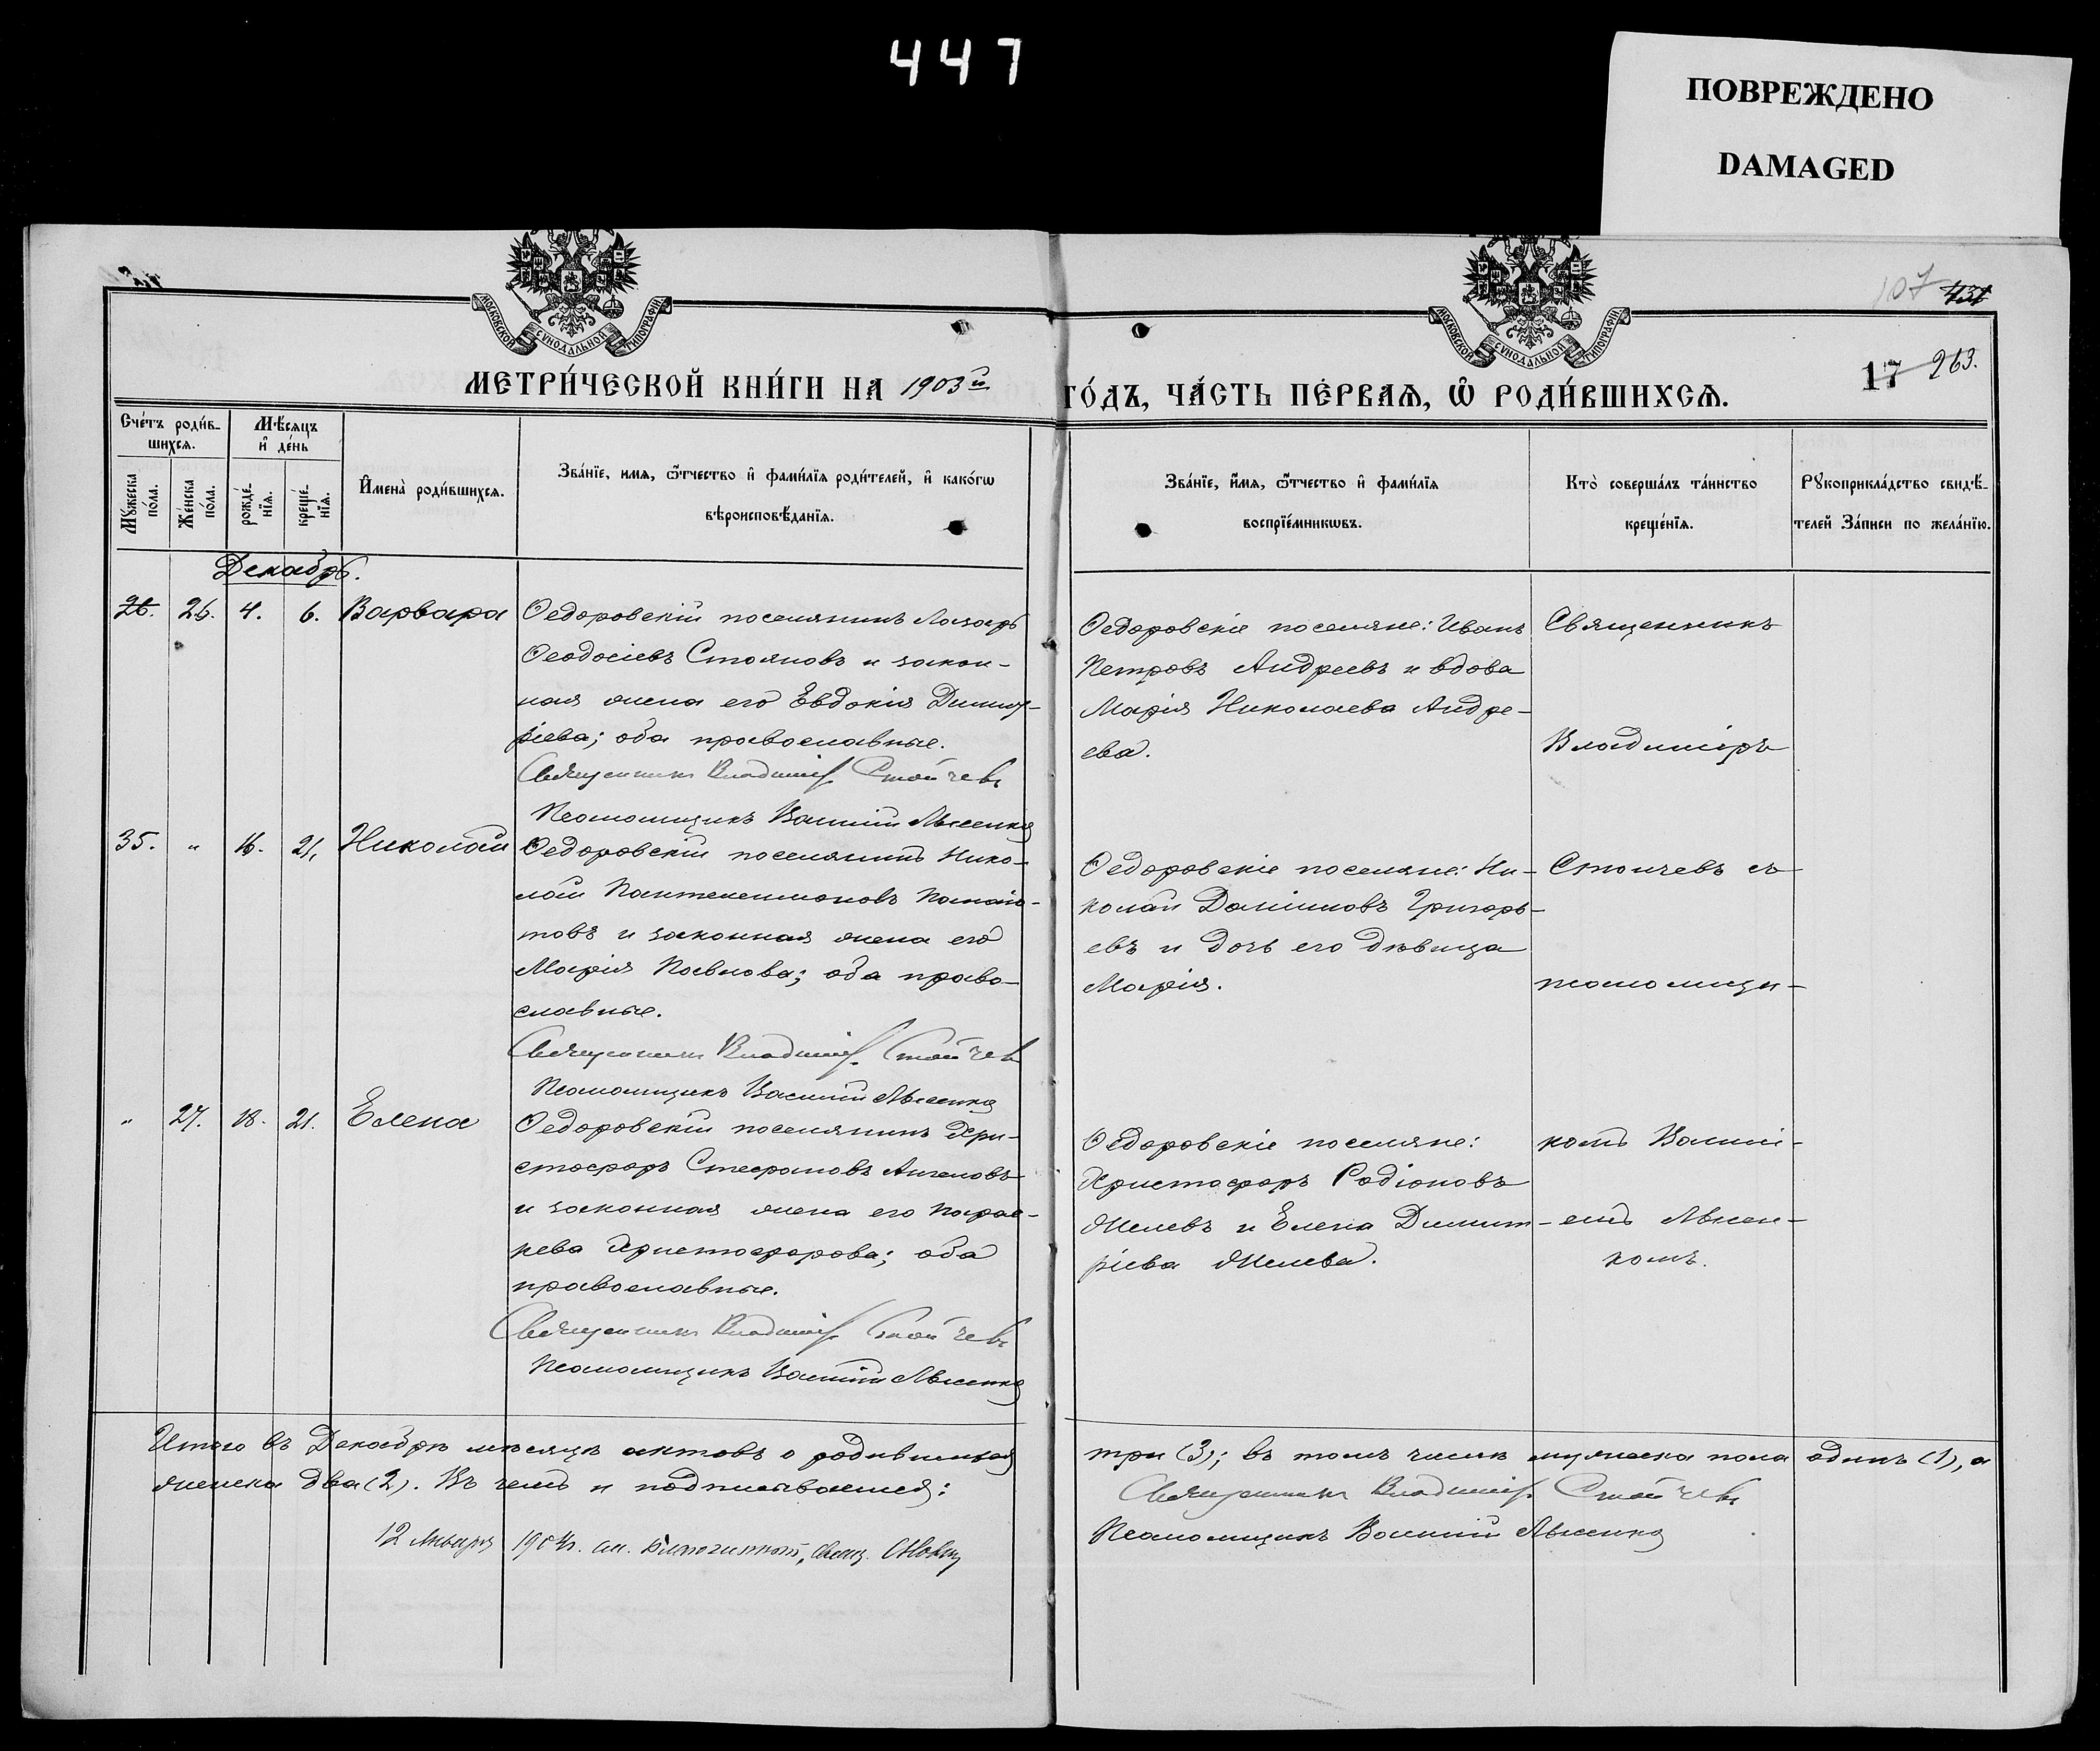 447
ПОВРЕЖДЕНО
DAMAGED
МОСКОВСКОЙ СУНОДАЛЬНОЙ ТИПОГРАФІИ
МОСКОВСКОЙ СУНОДАЛЬНОЙ ТИПОГРАФІИ
107 431
17 263.
МЕТРИ́ЧЕСКОЙ КНИ́ГИ НА 1903й
ГО́ДЪ, ЧА́СТЬ ПЕ́РВАѦ, Ѽ РОДИ́ВШИХСѦ.
Сче́тъ роди́в-
шихсѧ.
Мѣ́сѧцъ
и҆ де́нь
Мꙋ́жеска по́ла.
Же́нска по́ла.
рожде́-нїѧ.
креще́-нїѧ.
И҆мена̀ роди́вшихсѧ.
Зва́нїе, имѧ, ѻ҆́тчество и҆ фами́лїѧ роди́телей, и҆ како́гѡ
вѣроисповѣ́данїѧ.
Зва́нїе, и҆́мѧ, ѻ҆́тчество и҆ фами́лїѧ
воспрїе́мникѡвъ.
Кто̀ соверша́лъ та́инство
креще́нїѧ.
Рꙋкоприкла́дство свидѣ́-
телей За́писи по жела́нїю.
Декабрь.
26. 26. 4. 6. Варвара
Ѳедоровскій поселянинъ Лазарь
Ѳеодосіевъ Стояновъ и закон-
ная жена его Евдокія Димит-
ріева; оба православные.
Священникъ Владиміръ Стойчевъ
Псаломщикъ Василій Лысенко
Ѳедоровскіе поселяне: Иванъ
Петровъ Андреевъ и вдова
Марія Николаева Андре-
ева.
Священникъ
Владиміръ
35. " 16. 21. Николай
Ѳедоровскій поселянинъ Нико-
лай Пантелеимоновъ Панаіо-
товъ и законная жена его
Марія Павлова; оба право-
славные.
Священникъ Владиміръ Стойчевъ
Псаломщикъ Василій Лысенко
Ѳедоровскіе поселяне: Ни-
колай Даміановъ Григорь-
евъ и дочь его дѣвица
Марія.
Стойчевъ съ
псаломщи-
" 27. 18. 21. Елена
Ѳедоровскій поселянинъ Хри-
стофоръ Стефановъ Ангеловъ
и законная жена его Парас-
кева Христофорова; оба
православные.
Священникъ Владиміръ Стойчевъ
Псаломщикъ Василій Лысенко
Ѳедоровскіе поселяне:
Христофоръ Родіоновъ
Желевъ и Елена Димит-
ріева Желева.
комъ Василі-
емъ Лысен-
комъ.
Итого въ Декабрѣ мѣсяцѣ актовъ о родившихся
три (3); въ томъ числѣ мужеска пола одинъ (1), а
женска два (2). Въ чемъ и подписываемся:
Священникъ Владиміръ Стойчевъ
Псаломщикъ Василій Лысенко
12 Января 1904 г. Благочинный, свящ.